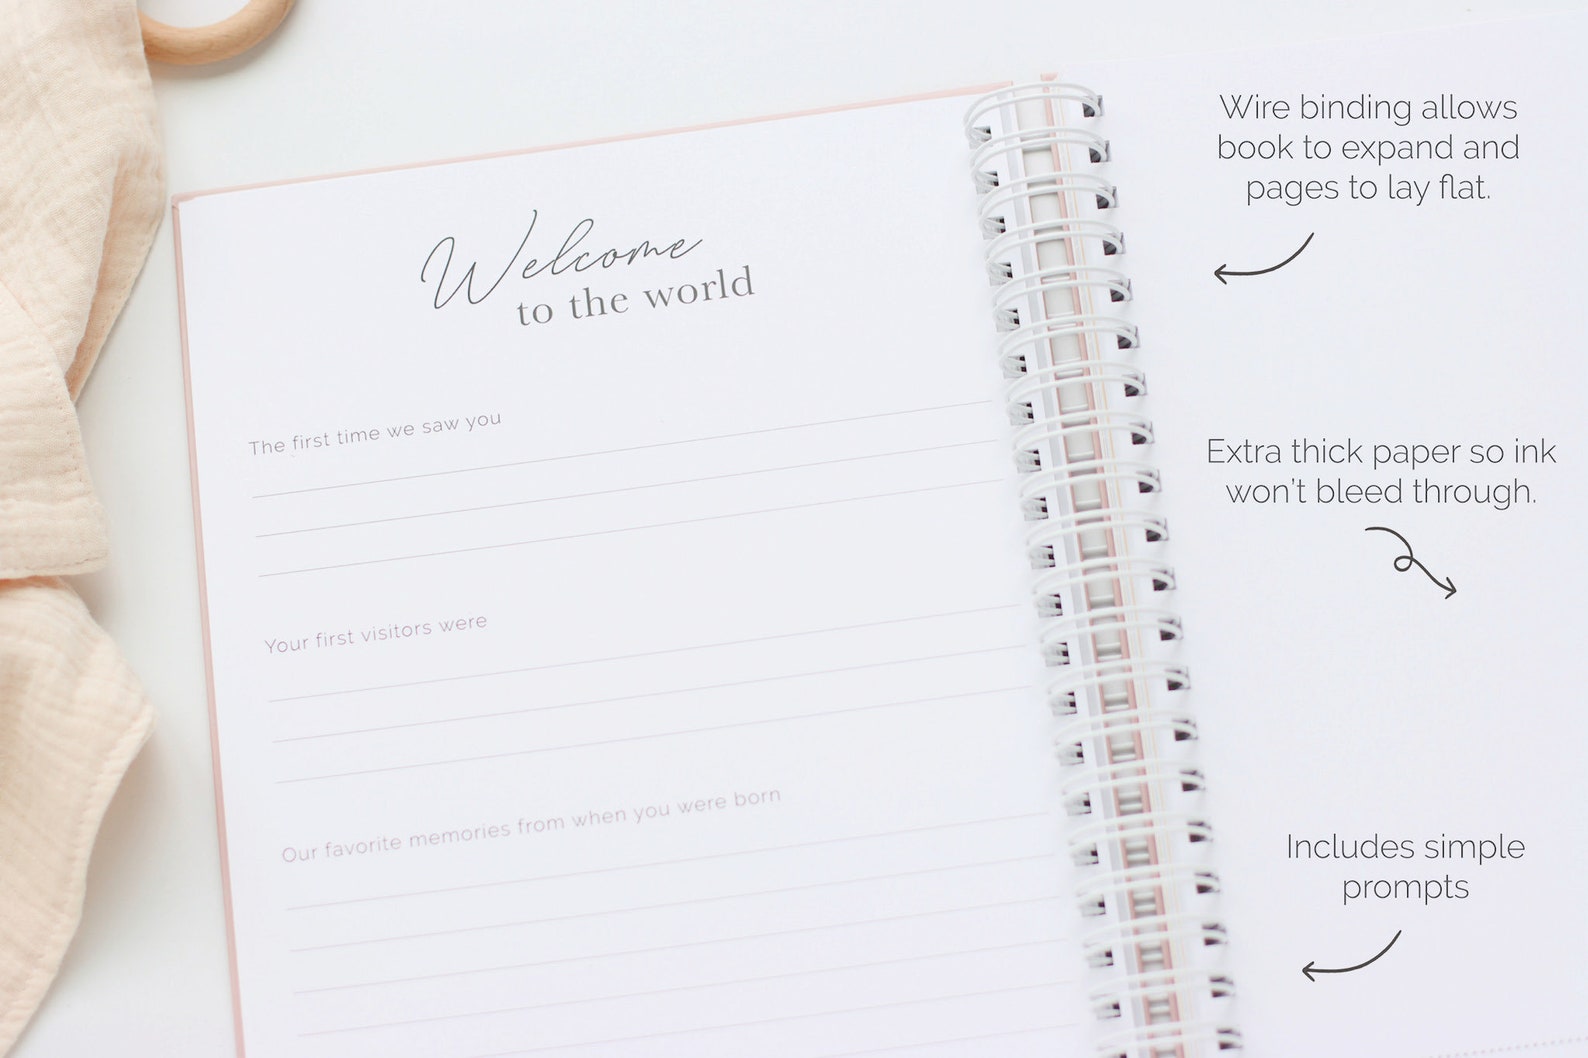 Welcome
to the world
The first time we saw you
Your first visitors were
Our favorite memories from when you were born
Wire binding allows
book to expand and
pages to lay flat.
Extra thick paper so ink
won't bleed through.
Includes simple
prompts